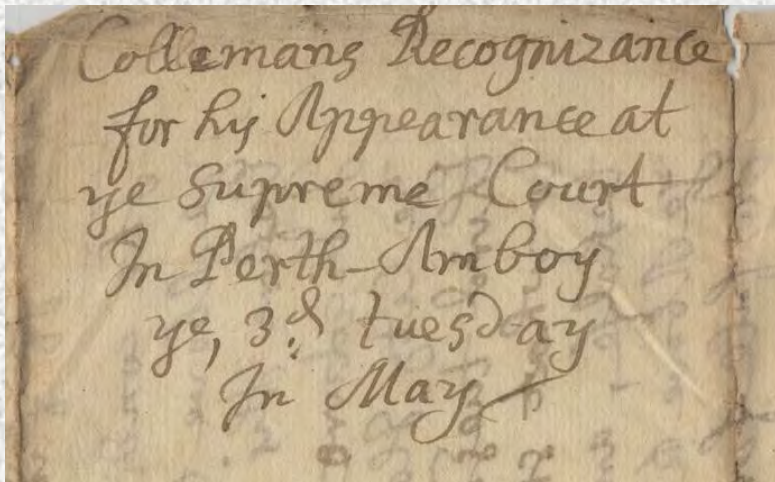 Collemans Recognizance
for his Appearance at
ye Supreme Court
In Perth-Amboy
ye, 3.d tuesday
In May